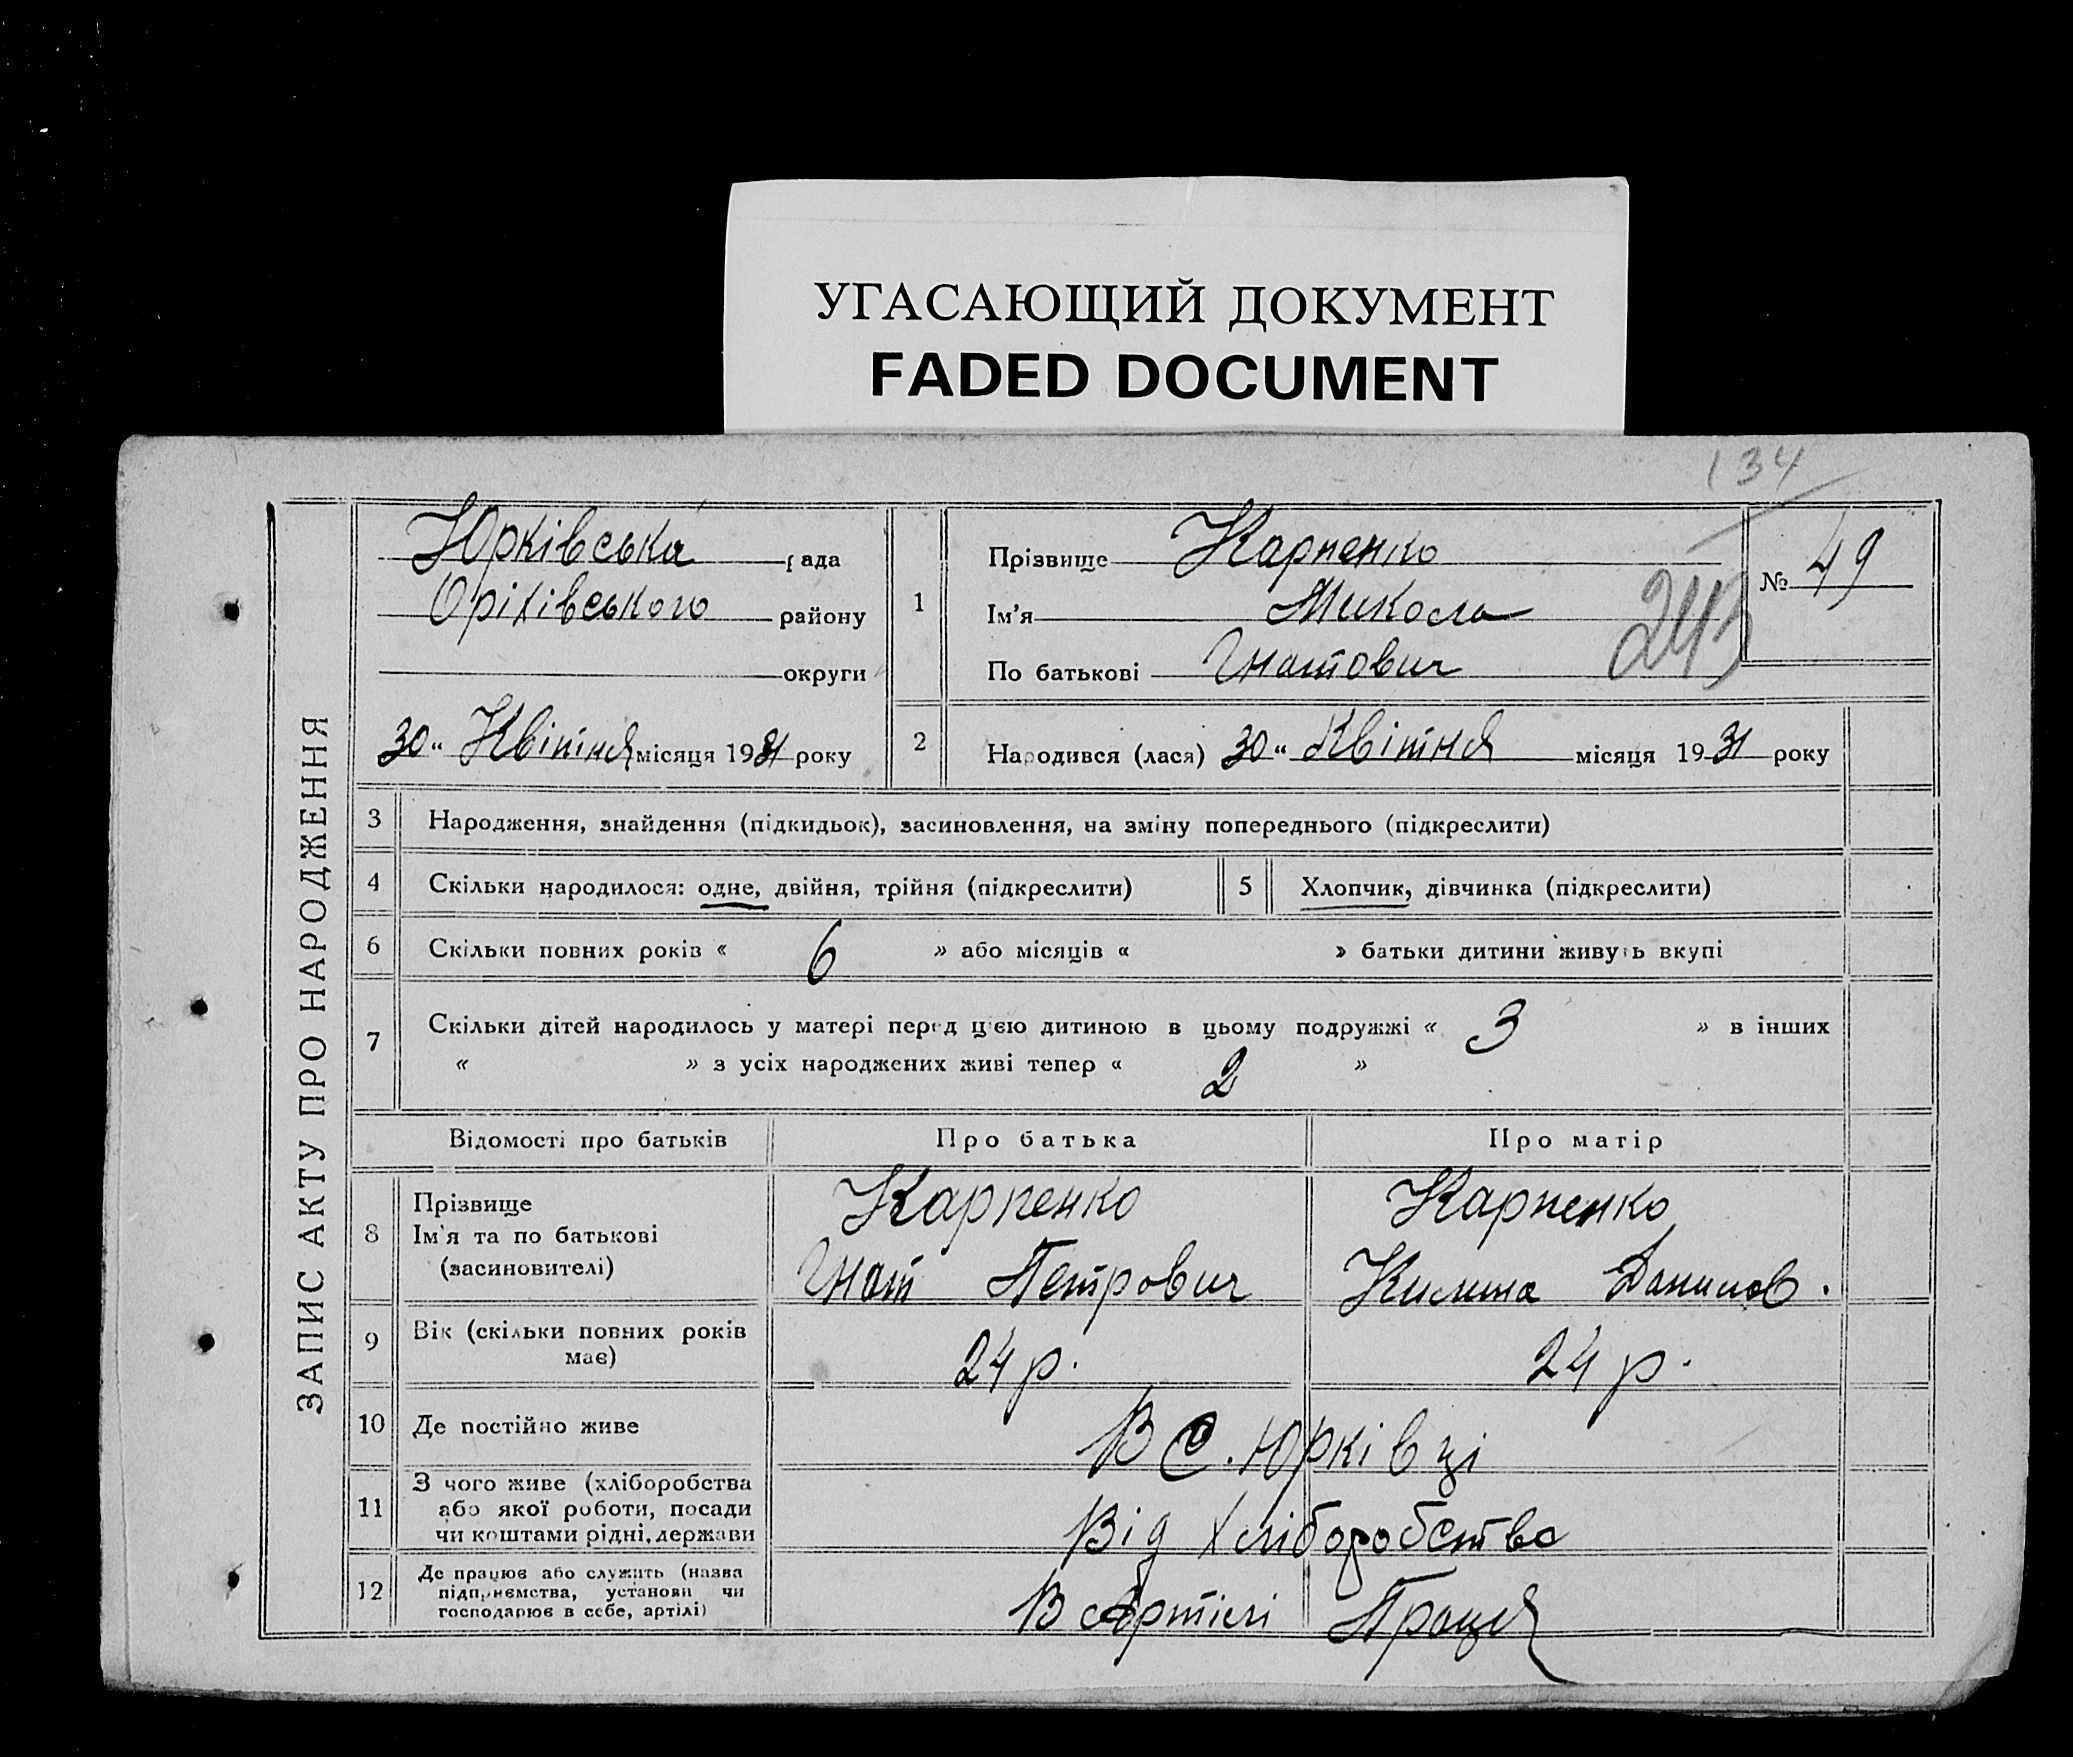 УГАСАЮЩИЙ ДОКУМЕНТ
FADED DOCUMENT
134
ЗАПИС АКТУ ПРО НАРОДЖЕННЯ
Юрківська рада
Оріхівського району
округи
30 " Квітня місяця 1931 року
1
Прізвище Карпенко
Ім'я Микола
По батькові Гнатович
№ 49
243
2
Народився (лася) 30 " Квітня місяця 1931 року
3 Народження, знайдення (підкидьок), засиновлення, на зміну попереднього (підкреслити)
4 Скільки народилося: одне, двійня, трійня (підкреслити)
5 Хлопчик, дівчинка (підкреслити)
6 Скільки повних років « 6 » або місяців « » батьки дитини живуть вкупі
7 Скільки дітей народилось у матері перед цією дитиною в цьому подружжі « 3 » в інших
« » з усіх народжених живі тепер « 2 »
Відомості про батьків Про батька Про матір
8 Прізвище Карпенко Карпенко
Ім'я та по батькові Гнат Петрович Килина Данилов.
(засиновителі)
9 Вік (скільки повних років має) 24 р. 24 р.
10 Де постійно живе В с. Юрківці
11 З чого живе (хліборобства
або якої роботи, посади
чи коштами рідні, держави
Від хліборобства
12 Де працює або служить (назва
підприємства, установи чи
господарює в себе, артілі)
В Артілі Праця